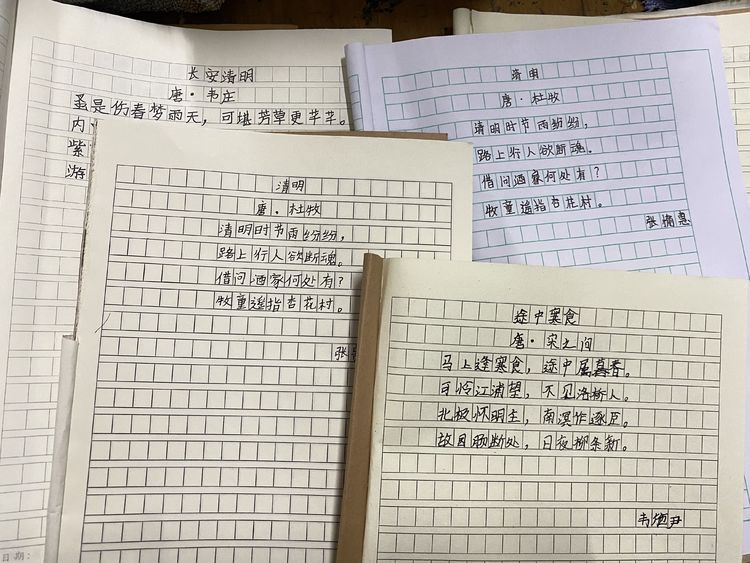 长安清明
唐·韦庄
蚤是伤春梦雨天，可堪芳草更芊芊。
内
紫
游
日期：
清明
唐·杜牧
清明时节雨纷纷，
路上行人欲断魂。
借问酒家何处有？
牧童遥指杏花村。
张楠惠
清明
唐·杜牧
清明时节雨纷纷，
路上行人欲断魂。
借问酒家何处有？
牧童遥指杏花村。
张
途中寒食
唐·宋之问
马上逢寒食，途中属暮春。
可怜江浦望，不见洛桥人。
北极怀明主，南溟作逐臣。
故园肠断处，日夜柳条新。